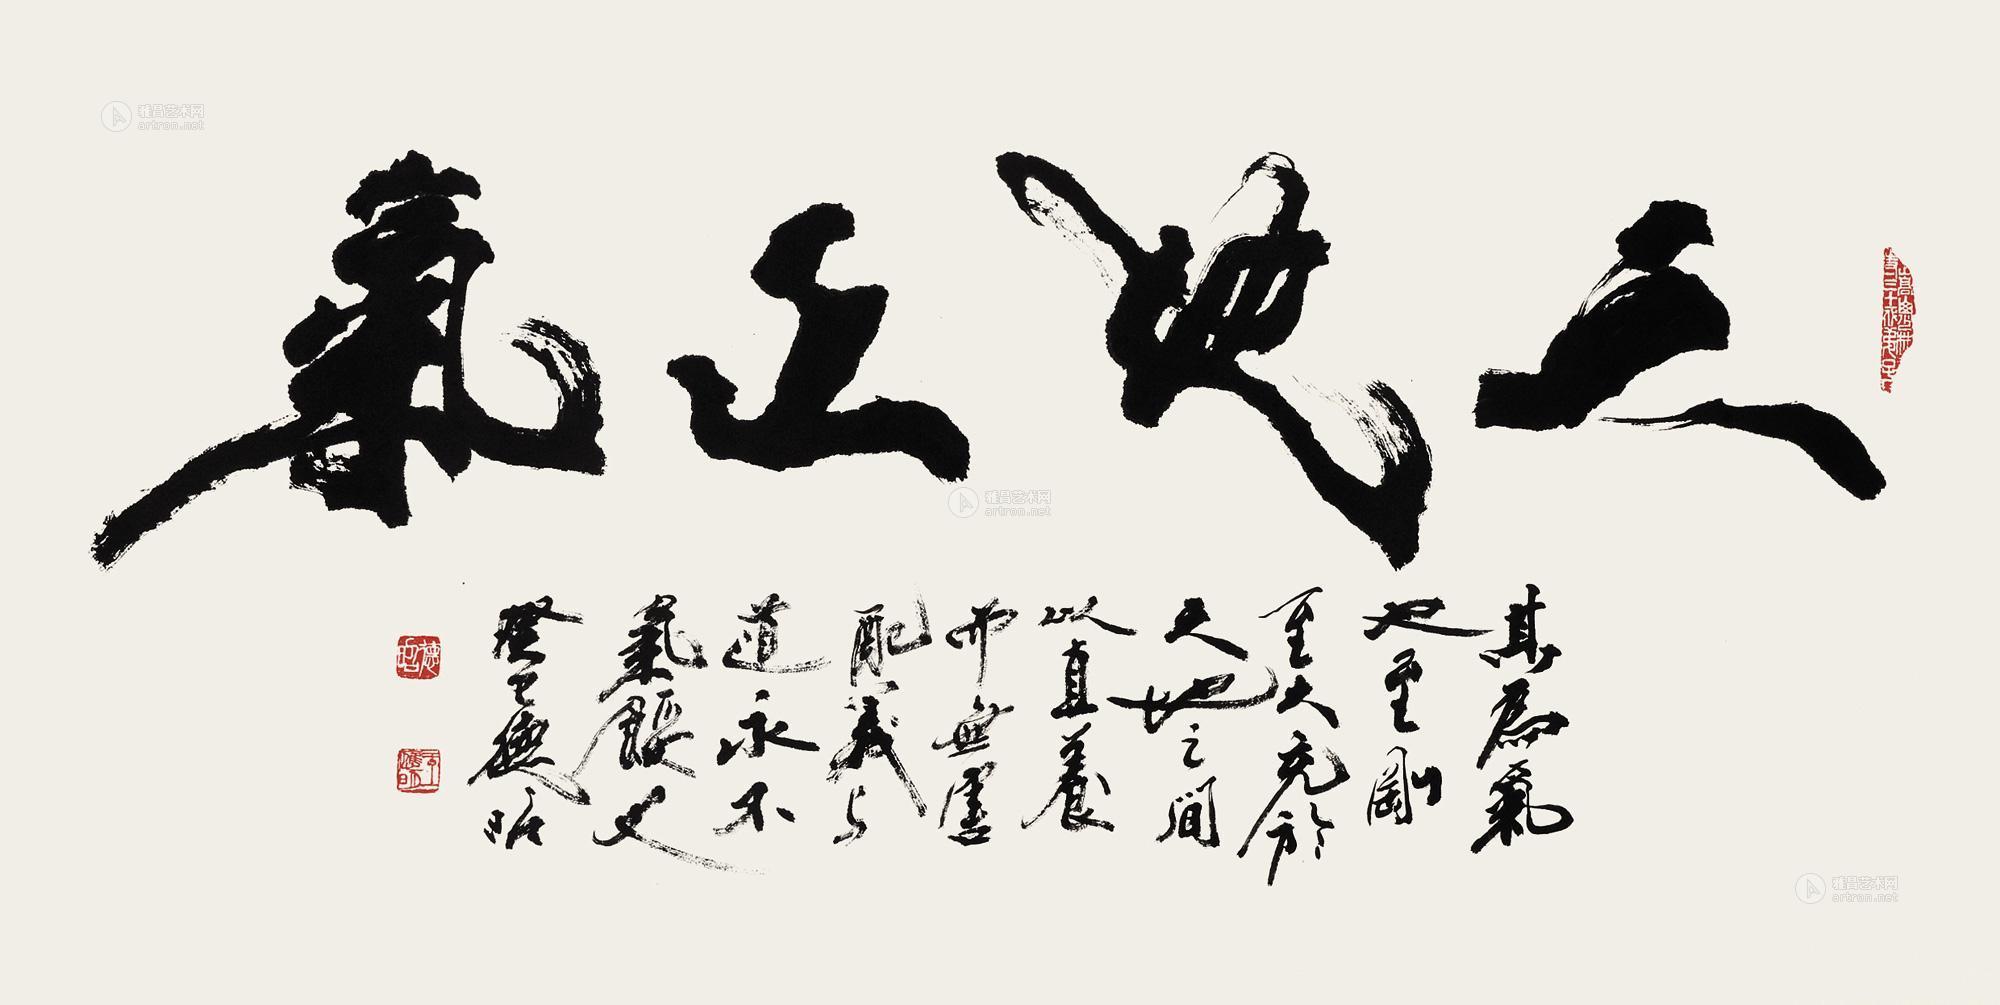 天地正氣
其為氣
也至剛
至大充於
天地之間
以直養
而無害
配義与
道永不
氣餒
癸巳德昭
德昭
雅昌艺术网
artron.net
雅昌艺术网
artron.net
雅昌艺术网
artron.net